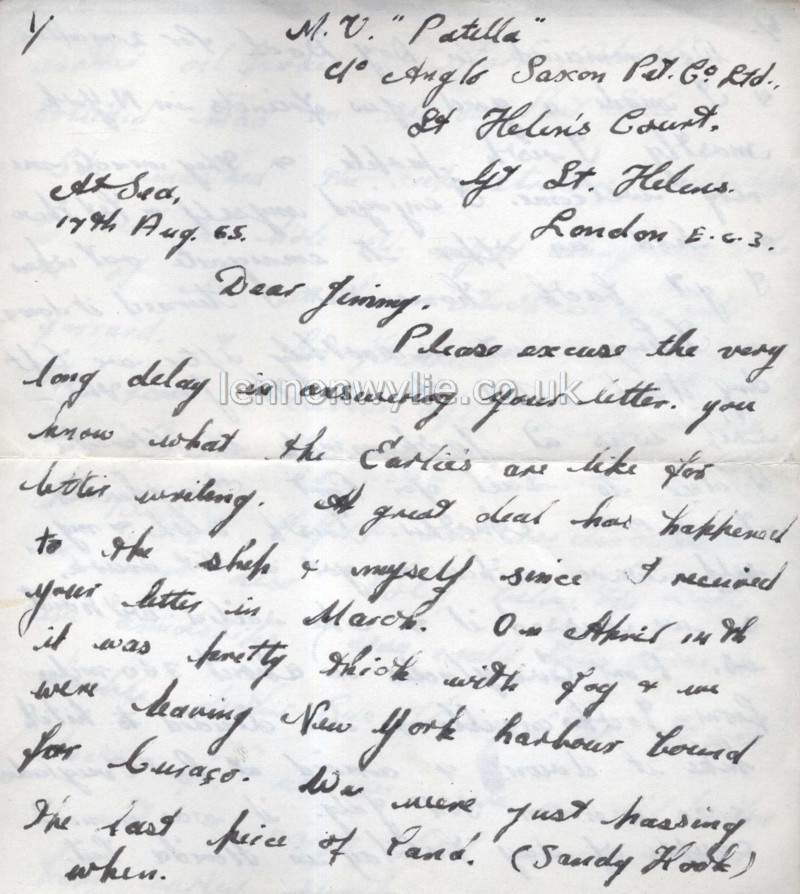 1/ M.V. "Patella"
c/o Anglo Saxon Pet. Co. Ltd.,
St Helen's Court,
Gt St. Helens.
London E.C.3.
At Sea,
17th Aug. 65.
Dear Jimmy,
Please excuse the very
long delay in answering your letter. you
know what the Earlie's are like for
letter writing. A great deal has happened
to the ship & myself since I received
your letter in March. On April
it was pretty thick with fog & we
were leaving New York harbour bound
for Curaço. We were just passing
the last peice of land. (Sandy Hook)
when.
lennonwylie.co.uk